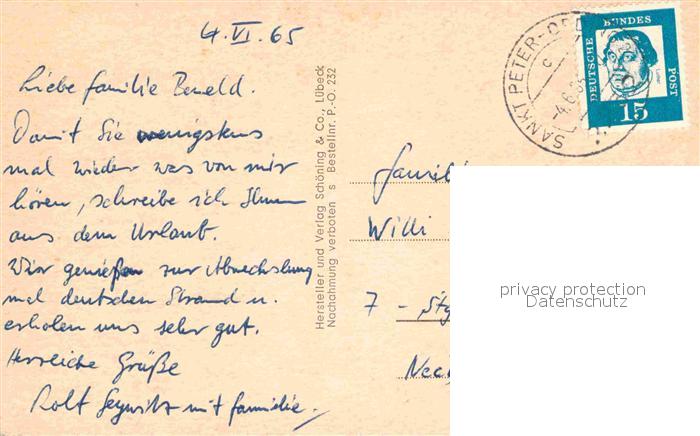 4. VI. 65
Liebe Familie
Damit Sie wenigstens
mal wieder was von mir
hören, schreibe ich Ihnen
aus dem Urlaub.
Wir genießen zur Abwechslung
mal deutschen Strand u.
erholen uns sehr gut.
Herzliche Grüße
Rolf mit Familie.
Hersteller und Verlag Schöning & Co., Lübeck
Nachahmung verboten s Bestellnr. P.-O. 232
SANKT PETER-ORDING
c
-4.6.65
DEUTSCHE BUNDESPOST
15
Famili
Willi
7 - Stg
Neck
privacy protection
Datenschutz